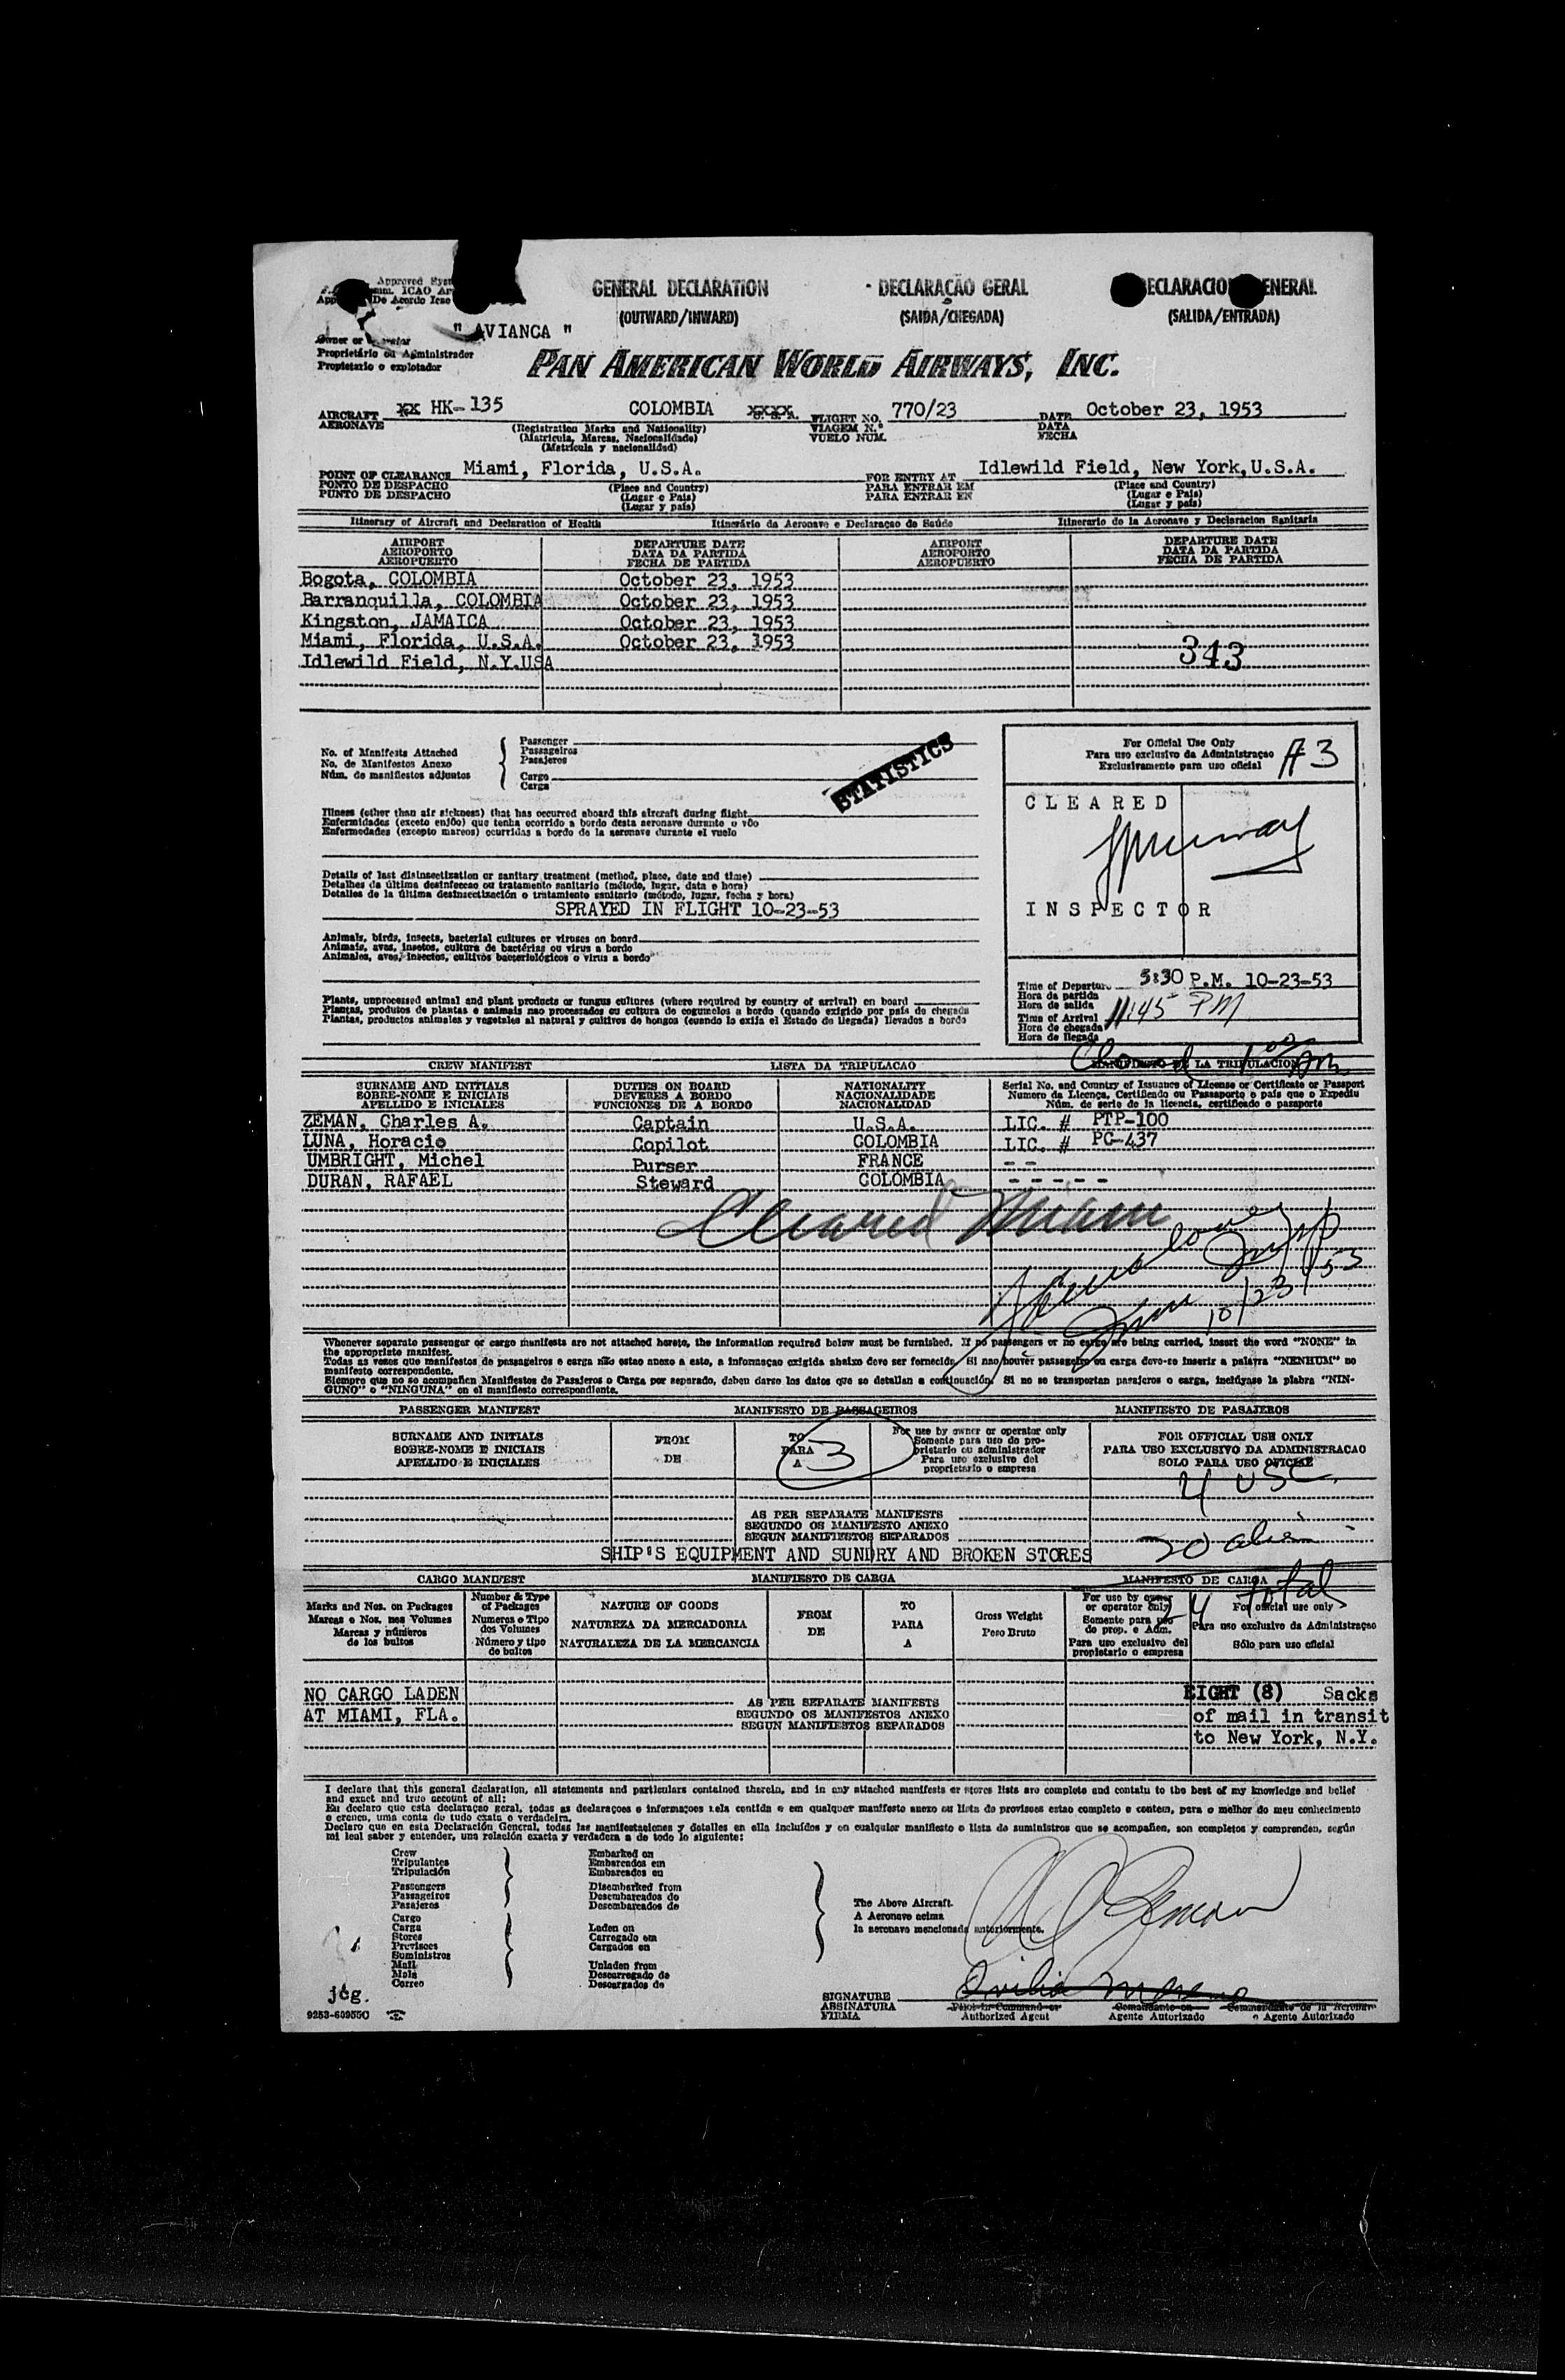 Approved
ICAO
De Acordo Icao
GENERAL DECLARATION
(OUTWARD/INWARD)
DECLARAÇÃO GERAL
(SAIDA/CHEGADA)
(SALIDA/ENTRADA)
" AVIANCA "
Owner or
Proprietário ou Administrador
Propietario o explotador
PAN AMERICAN WORLD AIRWAYS, INC.
AIRCRAFT xx HK-135 COLOMBIA xxxx FLIGHT NO. 770/23 DATE October 23, 1953
AERONAVE (Registration Marks and Nationality) VIAGEM N.º DATA
(Matricula, Marcas, Nacionalidade) VUELO NUM. FECHA
(Matrícula y nacionalidad)
POINT OF CLEARANCE Miami, Florida, U.S.A. FOR ENTRY AT Idlewild Field, New York, U.S.A.
PONTO DE DESPACHO (Place and Country) PARA ENTRAR EM (Place and Country)
PUNTO DE DESPACHO (Lugar e País) PARA ENTRAR EN (Lugar e País)
(Lugar y país) (Lugar y país)
Itinerary of Aircraft and Declaration of Health Itinerário da Aeronave e Declaraçao de Saúde Itinerario de la Aeronave y Declaracion Sanitaria
AIRPORT DEPARTURE DATE AIRPORT DEPARTURE DATE
AEROPORTO DATA DA PARTIDA AEROPORTO DATA DA PARTIDA
AEROPUERTO FECHA DE PARTIDA AEROPUERTO FECHA DE PARTIDA
Bogota, COLOMBIA October 23, 1953
Barranquilla, COLOMBIA October 23, 1953
Kingston, JAMAICA October 23, 1953
Miami, Florida, U.S.A. October 23, 1953 343
Idlewild Field, N.Y.USA
No. of Manifests Attached
No. de Manifestos Anexo
Núm. de manifiestos adjuntos
Passenger
Passageiros
Pasajeros
Cargo
Carga
STATISTICS
Illness (other than air sickness) that has occurred aboard this aircraft during flight
Enfermidades (exceto enjôo) que tenha ocorrido a bordo desta aeronave durante o vôo
Enfermedades (excepto mareos) ocurridas a bordo de la aeronave durante el vuelo
Details of last disinsectization or sanitary treatment (method, place, date and time)
Detalhes da última desinfeccao ou tratamento sanitario (método, lugar, data e hora)
Detalles de la última desinsectización o tratamiento sanitario (método, lugar, fecha y hora)
SPRAYED IN FLIGHT 10-23-53
Animals, birds, insects, bacterial cultures or viruses on board
Animais, aves, insetos, cultura de bactérias ou virus a bordo
Animales, aves, insectos, cultivos bacteriológicos o virus a bordo
Plants, unprocessed animal and plant products or fungus cultures (where required by country of arrival) on board
Plantas, produtos de plantas e animais nao processados ou cultura de cogumelos a bordo (quando exigido por país de chegada
Plantas, productos animales y vegetales al natural y cultivos de hongos (cuando lo exija el Estado de llegada) llevados a bordo
For Official Use Only
Para uso exclusivo da Administraçao
Exclusivamente para uso oficial
A3
CLEARED
INSPECTOR
Time of Departure 5:30 P.M. 10-23-53
Hora da partida
Hora de salida
Time of Arrival 11:45 PM
Hora de chegada
Hora de llegada
CREW MANIFEST LISTA DA TRIPULACAO MANIFIESTO DE LA TRIPULACION
SURNAME AND INITIALS DUTIES ON BOARD NATIONALITY Serial No. and Country of Issuance of License or Certificate or Passport
SOBRE-NOME E INICIAIS DEVERES A BORDO NACIONALIDADE Numero da Licença, Certificado ou Passaporte o país que o Expediu
APELLIDO E INICIALES FUNCIONES DE A BORDO NACIONALIDAD Núm. de serie de la licencia, certificado o pasaporte
ZEMAN, Charles A. Captain U.S.A. LIC. # PTP-100
LUNA, Horacio Copilot COLOMBIA LIC. # PC-437
UMBRIGHT, Michel Purser FRANCE - -
DURAN, RAFAEL Steward COLOMBIA - - - - -
Cleared Miami
10/23/53
Whenever separate passenger or cargo manifests are not attached hereto, the information required below must be furnished. If no passengers or no cargo are being carried, insert the word "NONE" in
the appropriate manifest.
Todas as vezes que manifestos de passageiros e carga não estao anexo a esto, a informaçao exigida abaixo deve ser fornecida. Si nao houver passageiro ou carga deve-se inserir a palavra "NENHUM" no
manifesto correspondente.
Siempre que no se acompañen Manifiestos de Pasajeros o Carga por separado, deben darse los datos que se detallan a continuación. Si no se transportan pasajeros o carga, inclúyase la plabra "NIN-
GUNO" o "NINGUNA" en el manifiesto correspondiente.
PASSENGER MANIFEST MANIFESTO DE PASSAGEIROS MANIFIESTO DE PASAJEROS
SURNAME AND INITIALS FROM TO For use by owner or operator only FOR OFFICIAL USE ONLY
SOBRE-NOME E INICIAIS DE PARA Somente para uso do pro- PARA USO EXCLUSIVO DA ADMINISTRACAO
APELLIDO E INICIALES A prietario ou administrador SOLO PARA USO OFICIAL
Para uso exclusivo del
proprietario o empresa
3
4 USC
AS PER SEPARATE MANIFESTS
SEGUNDO OS MANIFESTO ANEXO
SEGUN MANIFIESTOS SEPARADOS
20 alien
SHIP'S EQUIPMENT AND SUNDRY AND BROKEN STORES
CARGO MANIFEST MANIFIESTO DE CARGA MANIFESTO DE CARGA
24 total
Marks and Nos. on Packages Number & Type of Packages NATURE OF GOODS FROM TO Gross Weight For use by owner or operator only For official use only
Marcas e Nos. nos Volumes Numeros e Tipo dos Volumes NATUREZA DA MERCADORIA DE PARA Peso Bruto Somente para uso do prop. e Adm. Para uso exclusivo da Administraçao
Marcas y números de los bultos Número y tipo de bultos NATURALEZA DE LA MERCANCIA A Para uso exclusivo del propietario o empresa Sólo para uso oficial
NO CARGO LADEN AS PER SEPARATE MANIFESTS EIGHT (8) Sacks
AT MIAMI, FLA. SEGUNDO OS MANIFESTOS ANEXO of mail in transit
SEGUN MANIFIESTOS SEPARADOS to New York, N.Y.
I declare that this general declaration, all statements and particulars contained therein, and in any attached manifests or stores lists are complete and contain to the best of my knowledge and belief
and exact and true account of all:
Eu declaro que esta declaraçao geral, todas as declaraçoes e informaçoes nela contida e em qualquer manifesto anexo ou lista de provisoes estao completo e contem, para o melhor do meu conhecimento
e crenca, uma conta de tudo exata o verdadeira.
Declaro que en esta Declaración General, todas las manifestaciones y detalles en ella incluídos y en cualquier manifiesto o lista de suministros que se acompañen, son completos y comprenden, según
mi leal saber y entender, una relación exacta y verdadera a de todo lo siguiente:
Crew Embarked on
Tripulantes Embarcados em
Tripulación Embarcados en
Passengers Disembarked from
Passageiros Desembarcados de
Pasajeros Desembarcados de
Cargo
Carga Laden on
Stores Carregado em
Provisoes Cargados en
Suministros
Mail Unladen from
Mala Descarregado de
Correo Descargados de
The Above Aircraft.
A Aeronave acima
la aeronave mencionada anteriormente.
jcg.
9253-60955C
SIGNATURE
ASSINATURA Pilot-in-Command or Comandante ou Comandante de la Aeronave
FIRMA Authorized Agent Agente Autorizado o Agente Autorizado